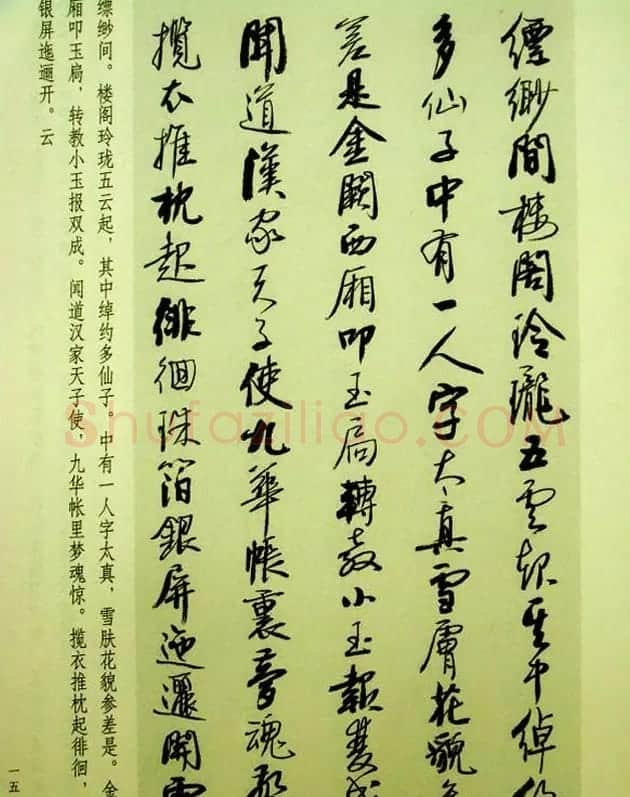 縹緲間樓閣玲瓏五雲起其中綽約
多仙子中有一人字太真雪膚花貌
差是金闕西廂叩玉扃轉教小玉報雙成
聞道漢家天子使九華帳裏夢魂
攬衣推枕起徘徊珠箔銀屏迤邐開雲
缥缈间。楼阁玲珑五云起，其中绰约多仙子。中有一人字太真，雪肤花貌参差是。金
厢叩玉扃，转教小玉报双成。闻道汉家天子使，九华帐里梦魂惊。揽衣推枕起徘徊，
银屏迤逦开。云
一五
Shufaziliao.COM